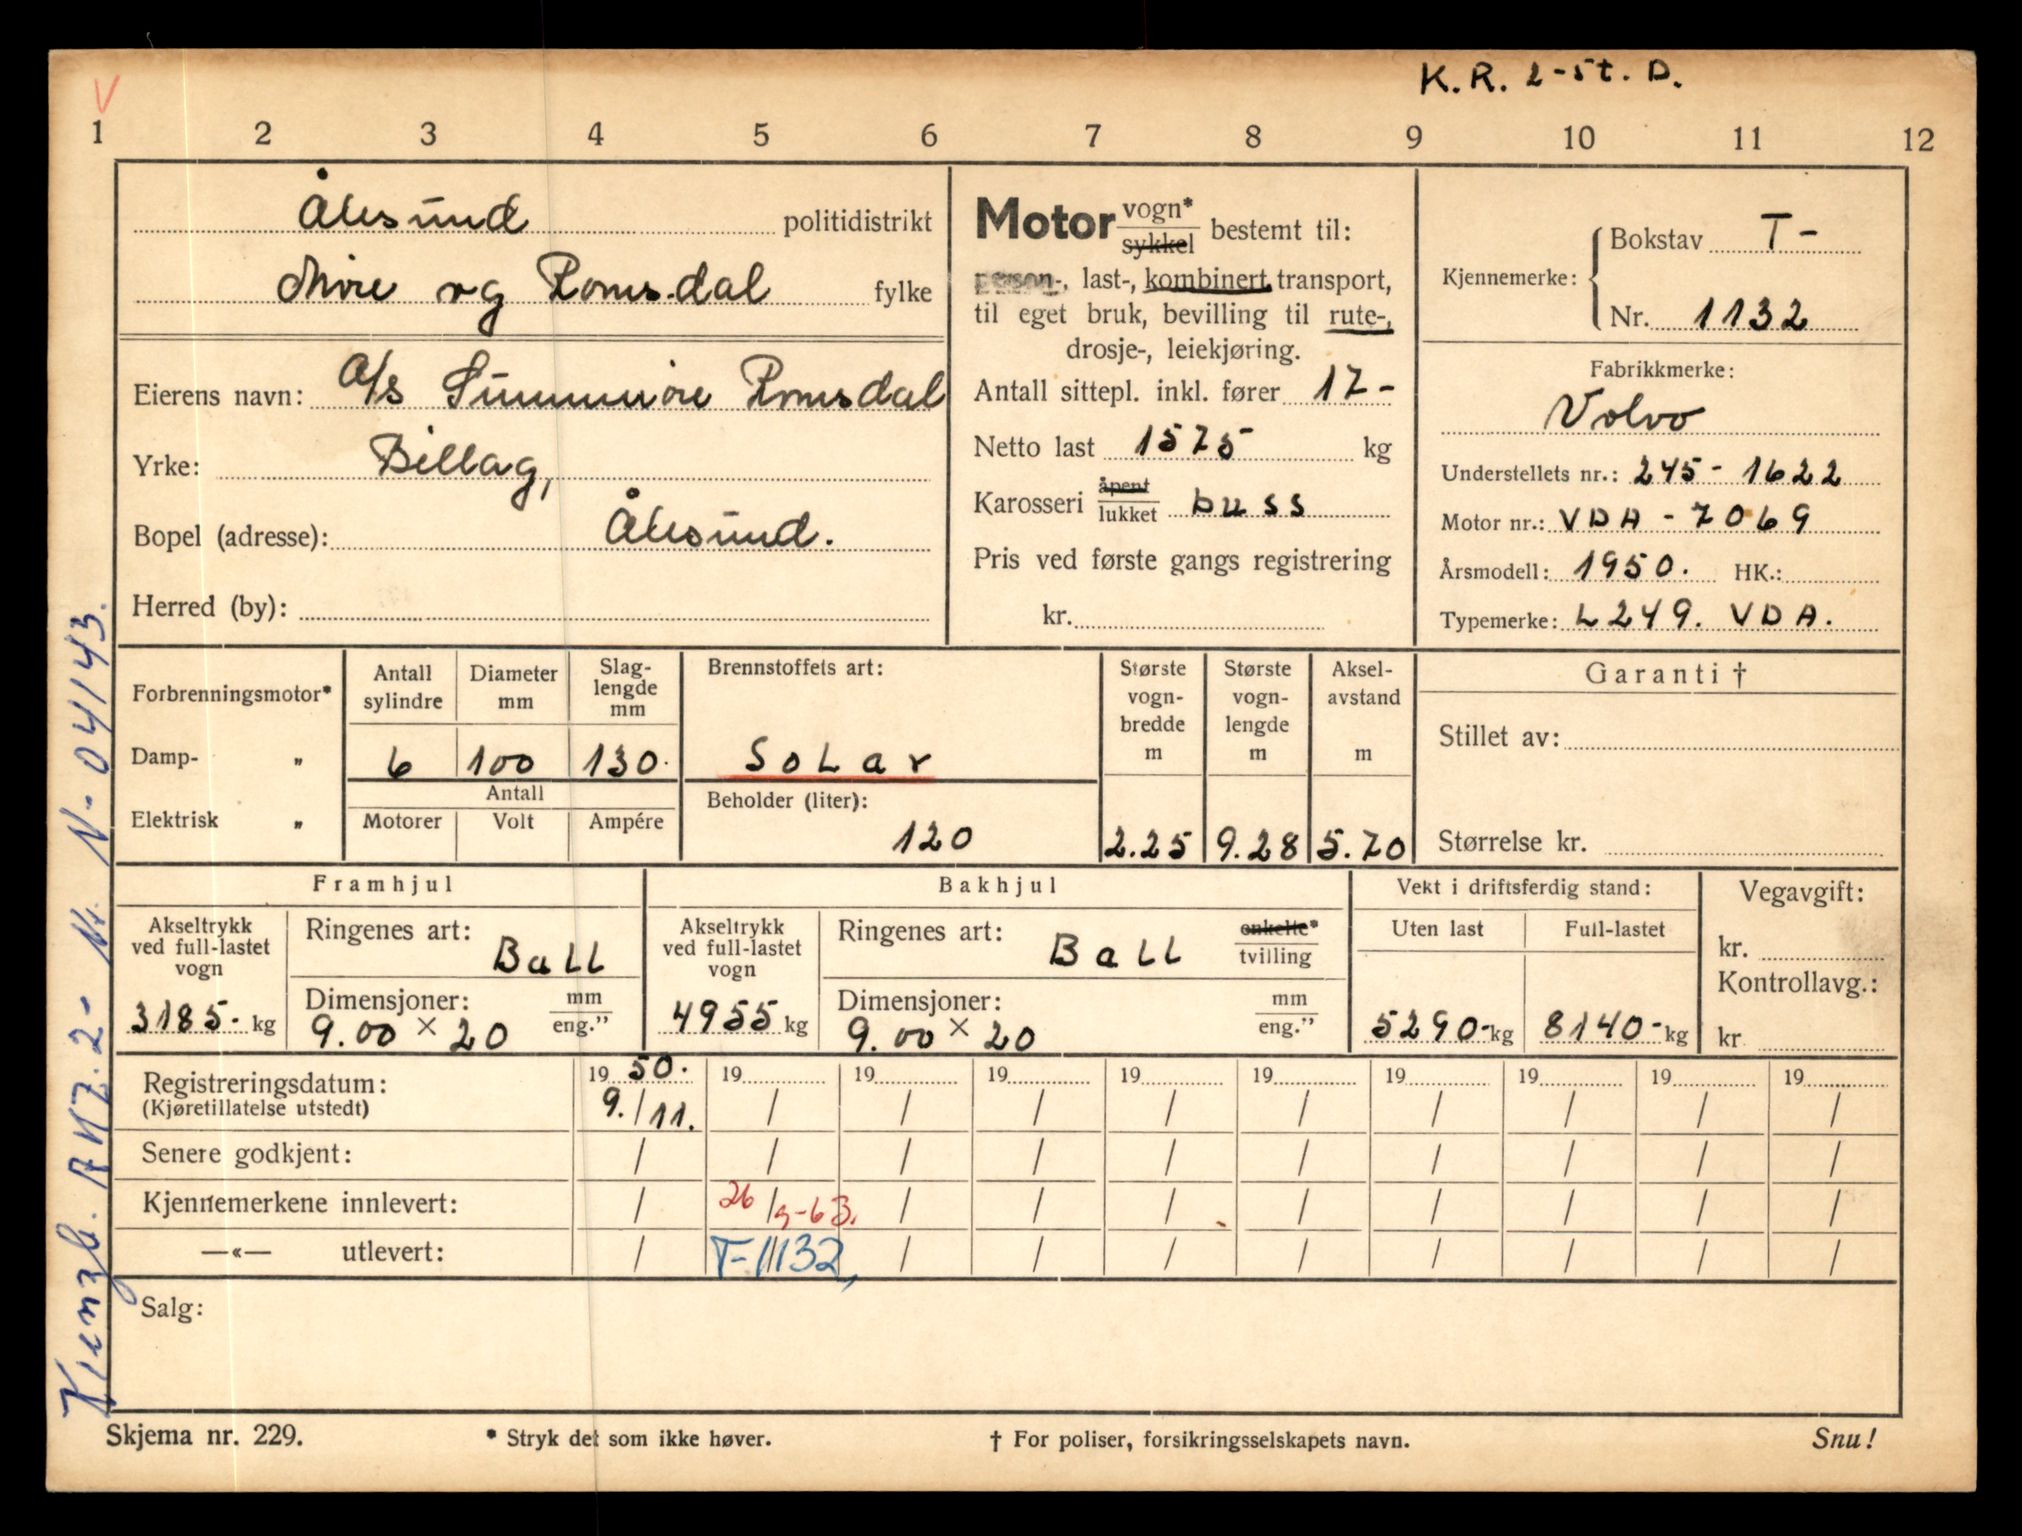 K.R. 2-st. D.
V
1 2 3 4 5 6 7 8 9 10 11 12
Ålesund politidistrikt
Møre og Romsdal fylke
Eierens navn: A/s Sunnmøre Romsdal
Yrke: Billag,
Bopel (adresse): Ålesund.
Herred (by):
Motor vogn* / sykkel bestemt til:
person-, last-, kombinert transport,
til eget bruk, bevilling til rute-,
drosje-, leiekjøring.
Antall sittepl. inkl. fører 17-
Netto last 1575 kg
Karosseri åpent / lukket buss
Pris ved første gangs registrering
kr.
Kjennemerke: Bokstav T-
Nr. 1132
Fabrikkmerke:
Volvo
Understellets nr.: 245-1622
Motor nr.: VDA-7069
Årsmodell: 1950. HK.:
Typemerke: L249. VDA.
Forbrenningsmotor*
Damp- „
Elektrisk „
Antall sylindre Diameter mm Slag-lengde mm
6 100 130.
Antall
Motorer Volt Ampére
Brennstoffets art:
Solar
Beholder (liter):
120
Største vogn-bredde m Største vogn-lengde m Aksel-avstand m
2.25 9.28 5.70
Garanti †
Stillet av:
Størrelse kr.
Framhjul
Akseltrykk ved full-lastet vogn
3185- kg
Ringenes art: Ball
Dimensjoner: mm / eng.”
9.00 × 20
Bakhjul
Akseltrykk ved full-lastet vogn
4955 kg
Ringenes art: Ball enkelte* / tvilling
Dimensjoner: mm / eng.”
9.00 × 20
Vekt i driftsferdig stand:
Uten last Full-lastet
5290- kg 8140- kg
Vegavgift:
kr.
Kontrollavg.:
kr
Registreringsdatum: 19 50. 19 19 19 19 19 19 19 19 19
(Kjøretillatelse utstedt) 9./11. / / / / / / / / /
Senere godkjent: / / / / / / / / / /
Kjennemerkene innlevert: / 26/9-63. / / / / / / / /
—«— utlevert: / T-1132, / / / / / / / /
Salg:
Skjema nr. 229. * Stryk det som ikke høver. † For poliser, forsikringsselskapets navn. Snu!
Nr. N-04143.